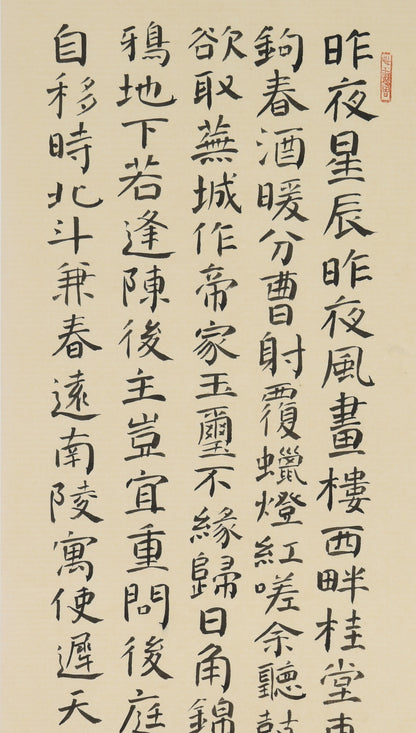 昨夜星辰昨夜風畫樓西畔桂堂東
鉤春酒暖分曹射覆蠟燈紅嗟余聽鼓
欲取蕪城作帝家玉璽不緣歸日角錦
鴉地下若逢陳後主豈宜重問後庭
自移時北斗兼春遠南陵寓使遲天